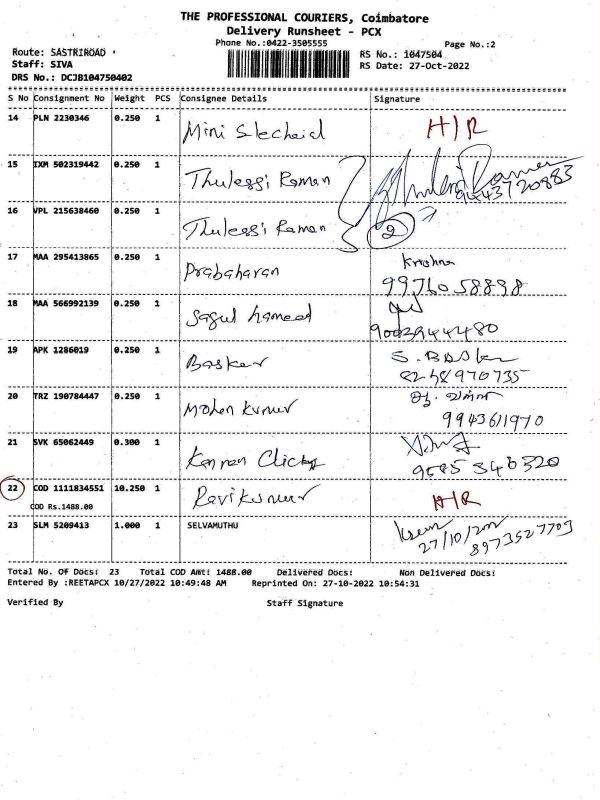 THE PROFESSIONAL COURIERS, Coimbatore
Delivery Runsheet - PCX
Phone No.:0422-3505555
Page No.:2
Route: SASTRIROAD
RS No.: 1047504
Staff: SIVA
RS Date: 27-Oct-2022
DRS No.: DCJB104750402
S No Consignment No Weight PCS Consignee Details Signature
14 PLN 2230346 0.250 1 Mini H/R
15 IXM 502319442 0.250 1 Thulessi Raman
9443720883
16 VPL 215638460 0.250 1 Thulessi Raman 2
17 MAA 295413865 0.250 1 Prabaharan Krishna
9976058898
18 MAA 566992139 0.250 1 Sagul hameed
9003944480
19 APK 1286019 0.250 1 Basker S. Baskar
8248970735
20 TRZ 190784447 0.250 1 Mohan kumar
9943611970
21 SVK 65062449 0.300 1 Kannan
9585340320
22 COD 1111834551 10.250 1 Ravikumar H/R
COD Rs.1488.00
23 SLM 5209413 1.000 1 SELVAMUTHU
27/10/2022
8973527709
Total No. Of Docs: 23 Total COD Amt: 1488.00 Delivered Docs: Non Delivered Docs:
Entered By :REETAPCX 10/27/2022 10:49:48 AM Reprinted On: 27-10-2022 10:54:31
Verified By Staff Signature